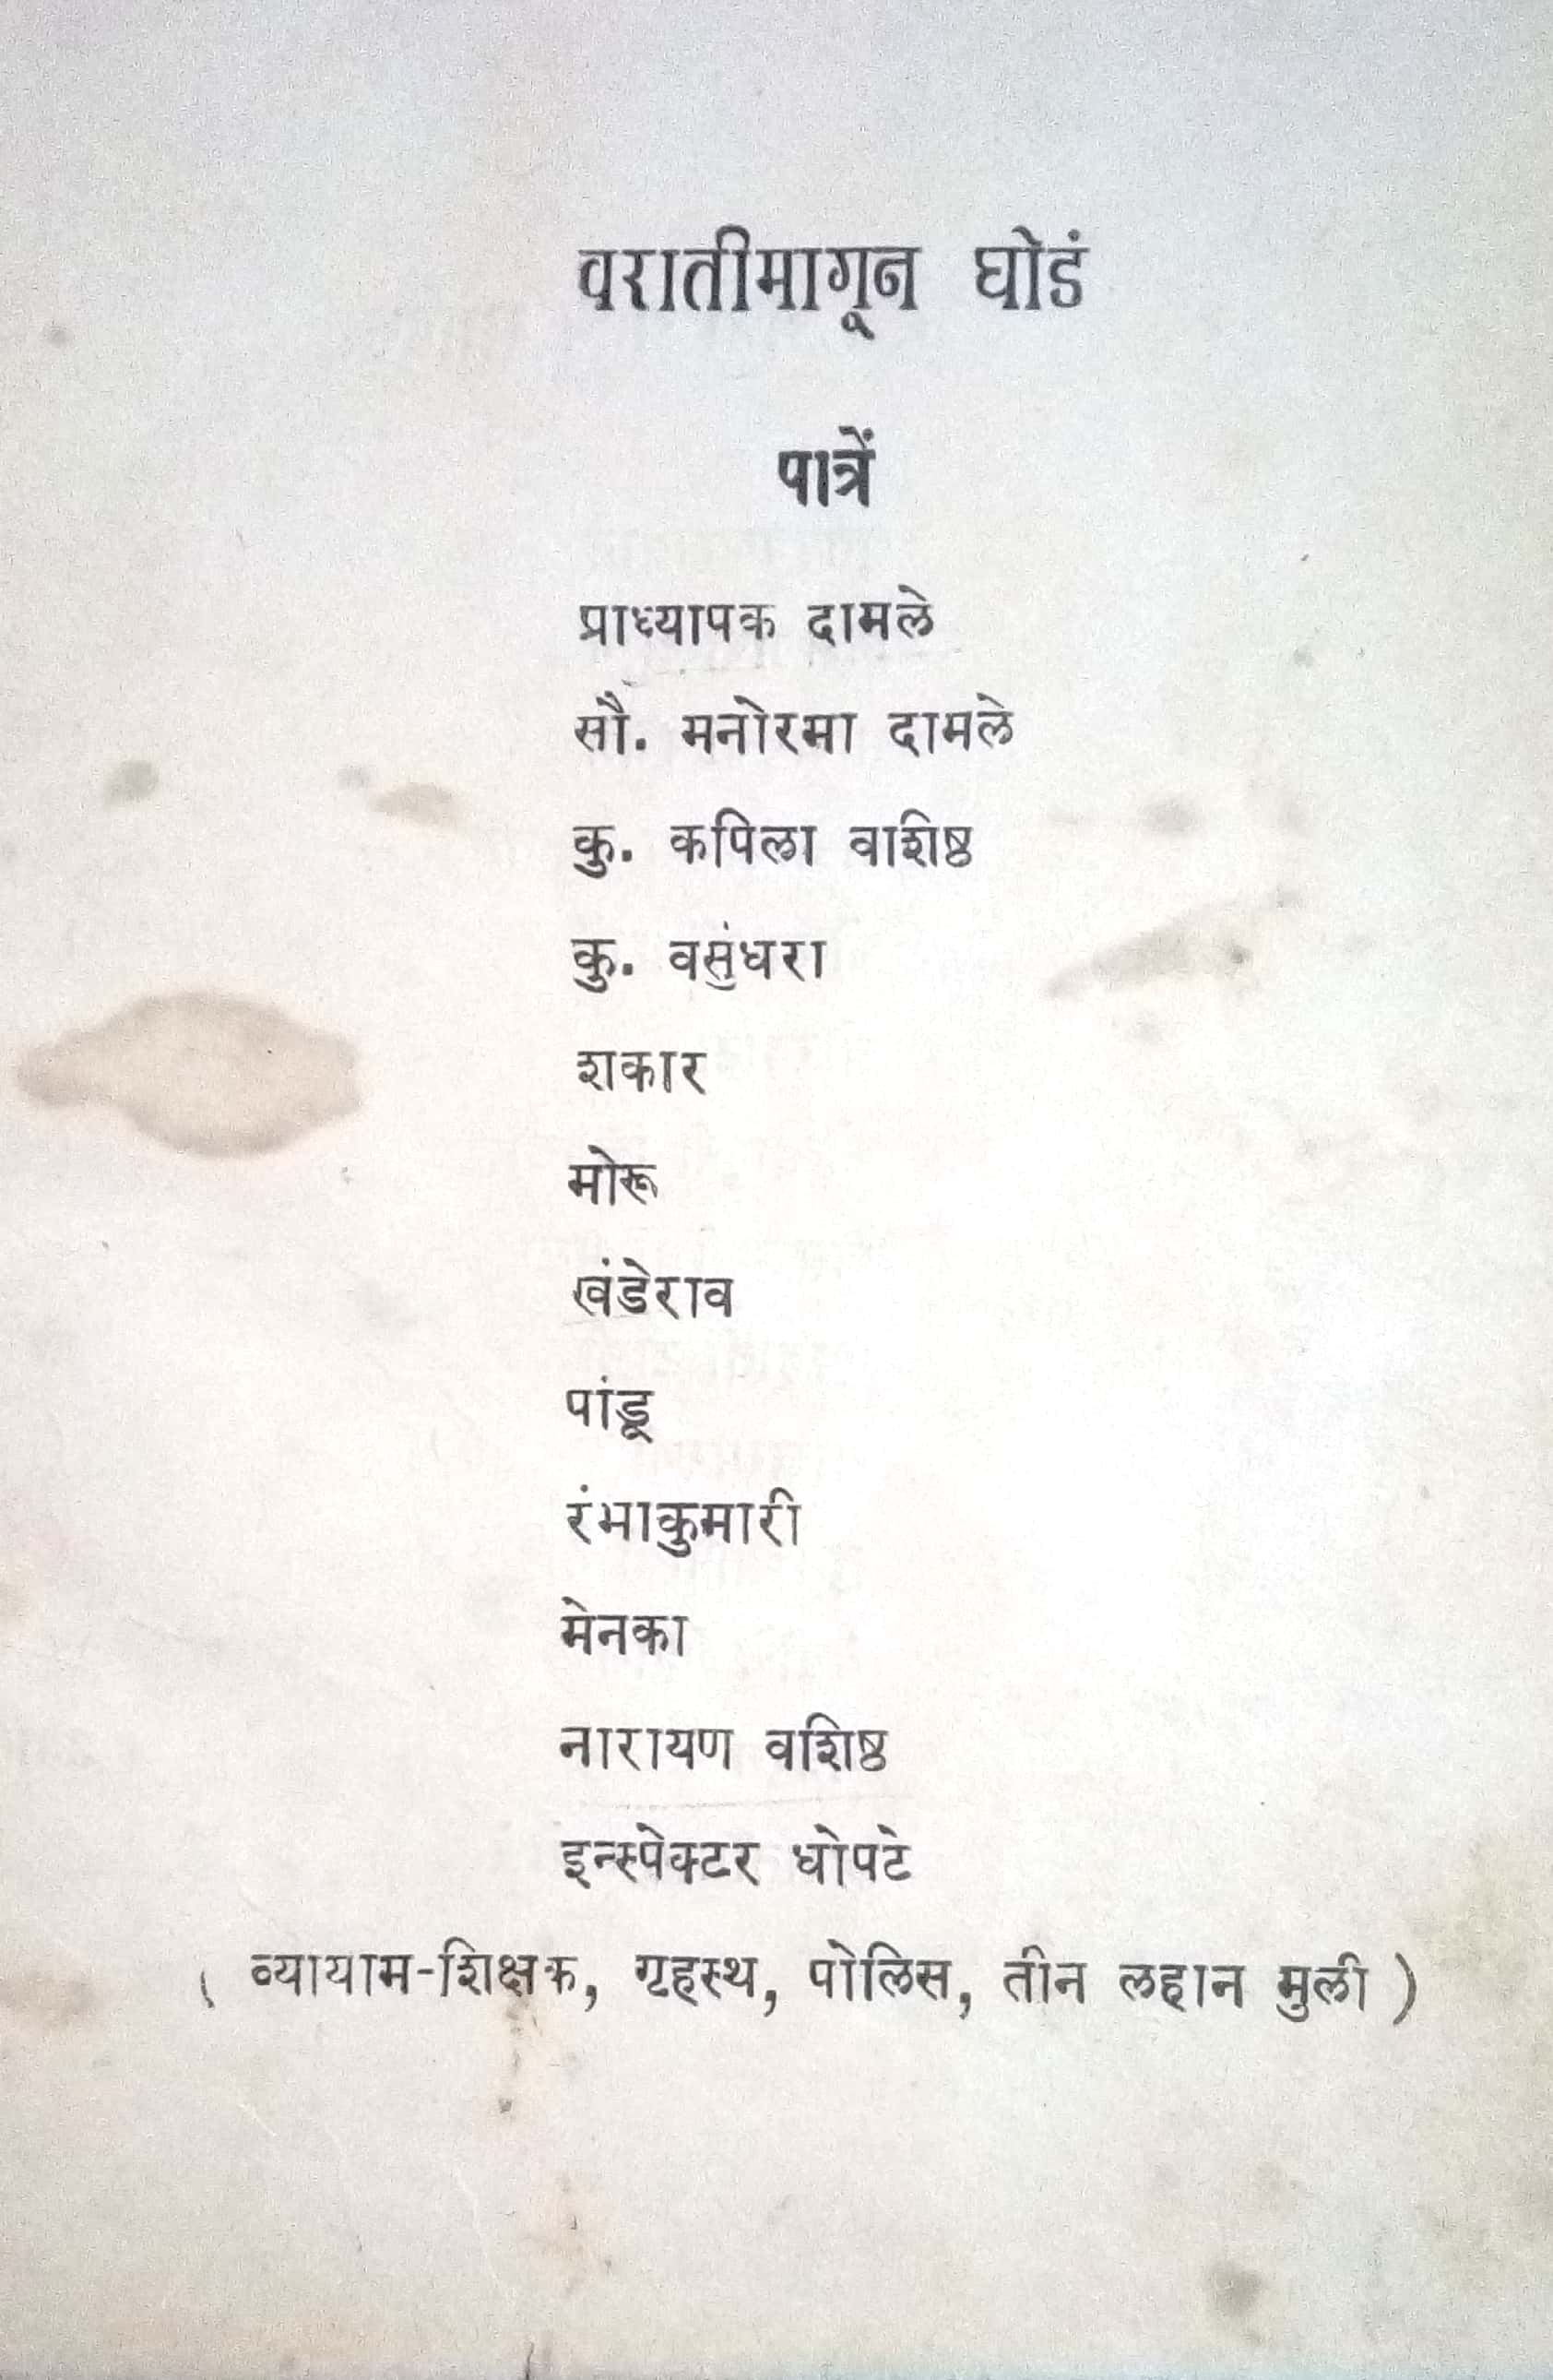 वरातीमागून घोडं
पात्रें
प्राध्यापक दामले
सौ. मनोरमा दामले
कु. कपिला वाशिष्ठ
कु. वसुंधरा
शकार
मोरू
खंडेराव
पांडू
रंभाकुमारी
मेनका
नारायण वशिष्ठ
इन्स्पेक्टर धोपटे
( व्यायाम-शिक्षक, गृहस्थ, पोलिस, तीन लहान मुली )